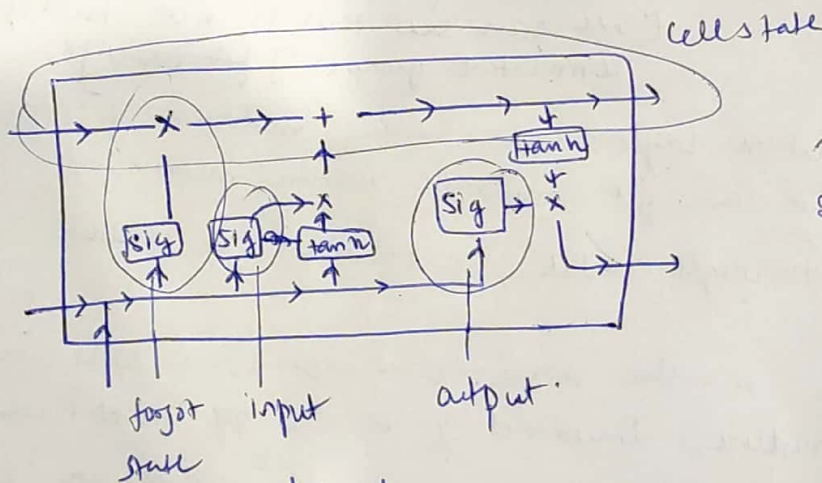 Cell state
x
+
tanh
Sig
x
x
sig
Sig
tanh
forgot
state
input
output.